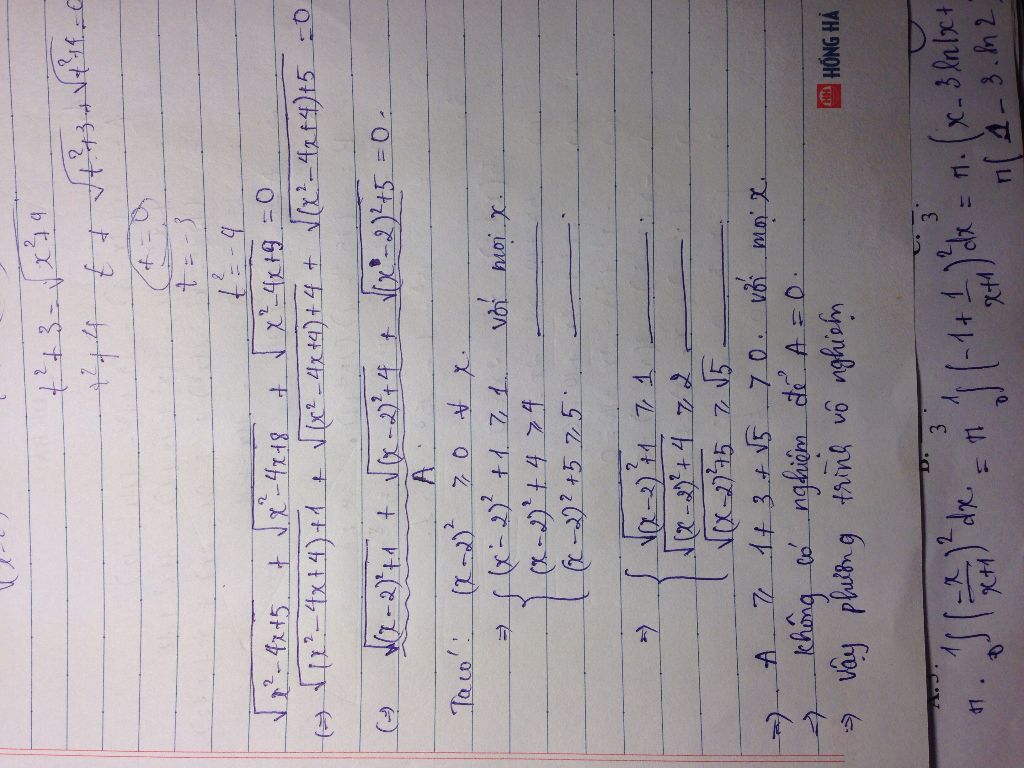 t² + 3 = √(x²+9
t² + 4
t + √(t²+3) + √(t²+4) = 0
t = 0
t = -3
t² = -4
√(x²-4x+5) + √(x²-4x+8) + √(x²-4x+9) = 0
(=) √((x²-4x+4)+1) + √((x²-4x+4)+4) + √((x²-4x+4)+5) = 0
(=) √((x-2)²+1) + √((x-2)²+4) + √((x-2)²+5) = 0.
A.
Ta có: (x-2)² ≥ 0 ∀ x.
=> { (x-2)² + 1 ≥ 1 với mọi x.
(x-2)² + 4 ≥ 4 ———
(x-2)² + 5 ≥ 5 ———.
=> { √((x-2)²+1) ≥ 1 ———
√((x-2)²+4) ≥ 2 ———
√((x-2)²+5) ≥ √5 ———
=> A ≥ 1 + 3 + √5 > 0. với mọi x.
=> không có nghiệm để A = 0.
=> Vậy phương trình vô nghiệm
HỒNG HÀ
A. 3. B. 3. C. 3.
π. ₀∫¹ (x/(x+1))² dx. = π ₀∫¹ (-1 + 1/(x+1))² dx = π. (x - 3ln|x+
π( 1 - 3.ln2